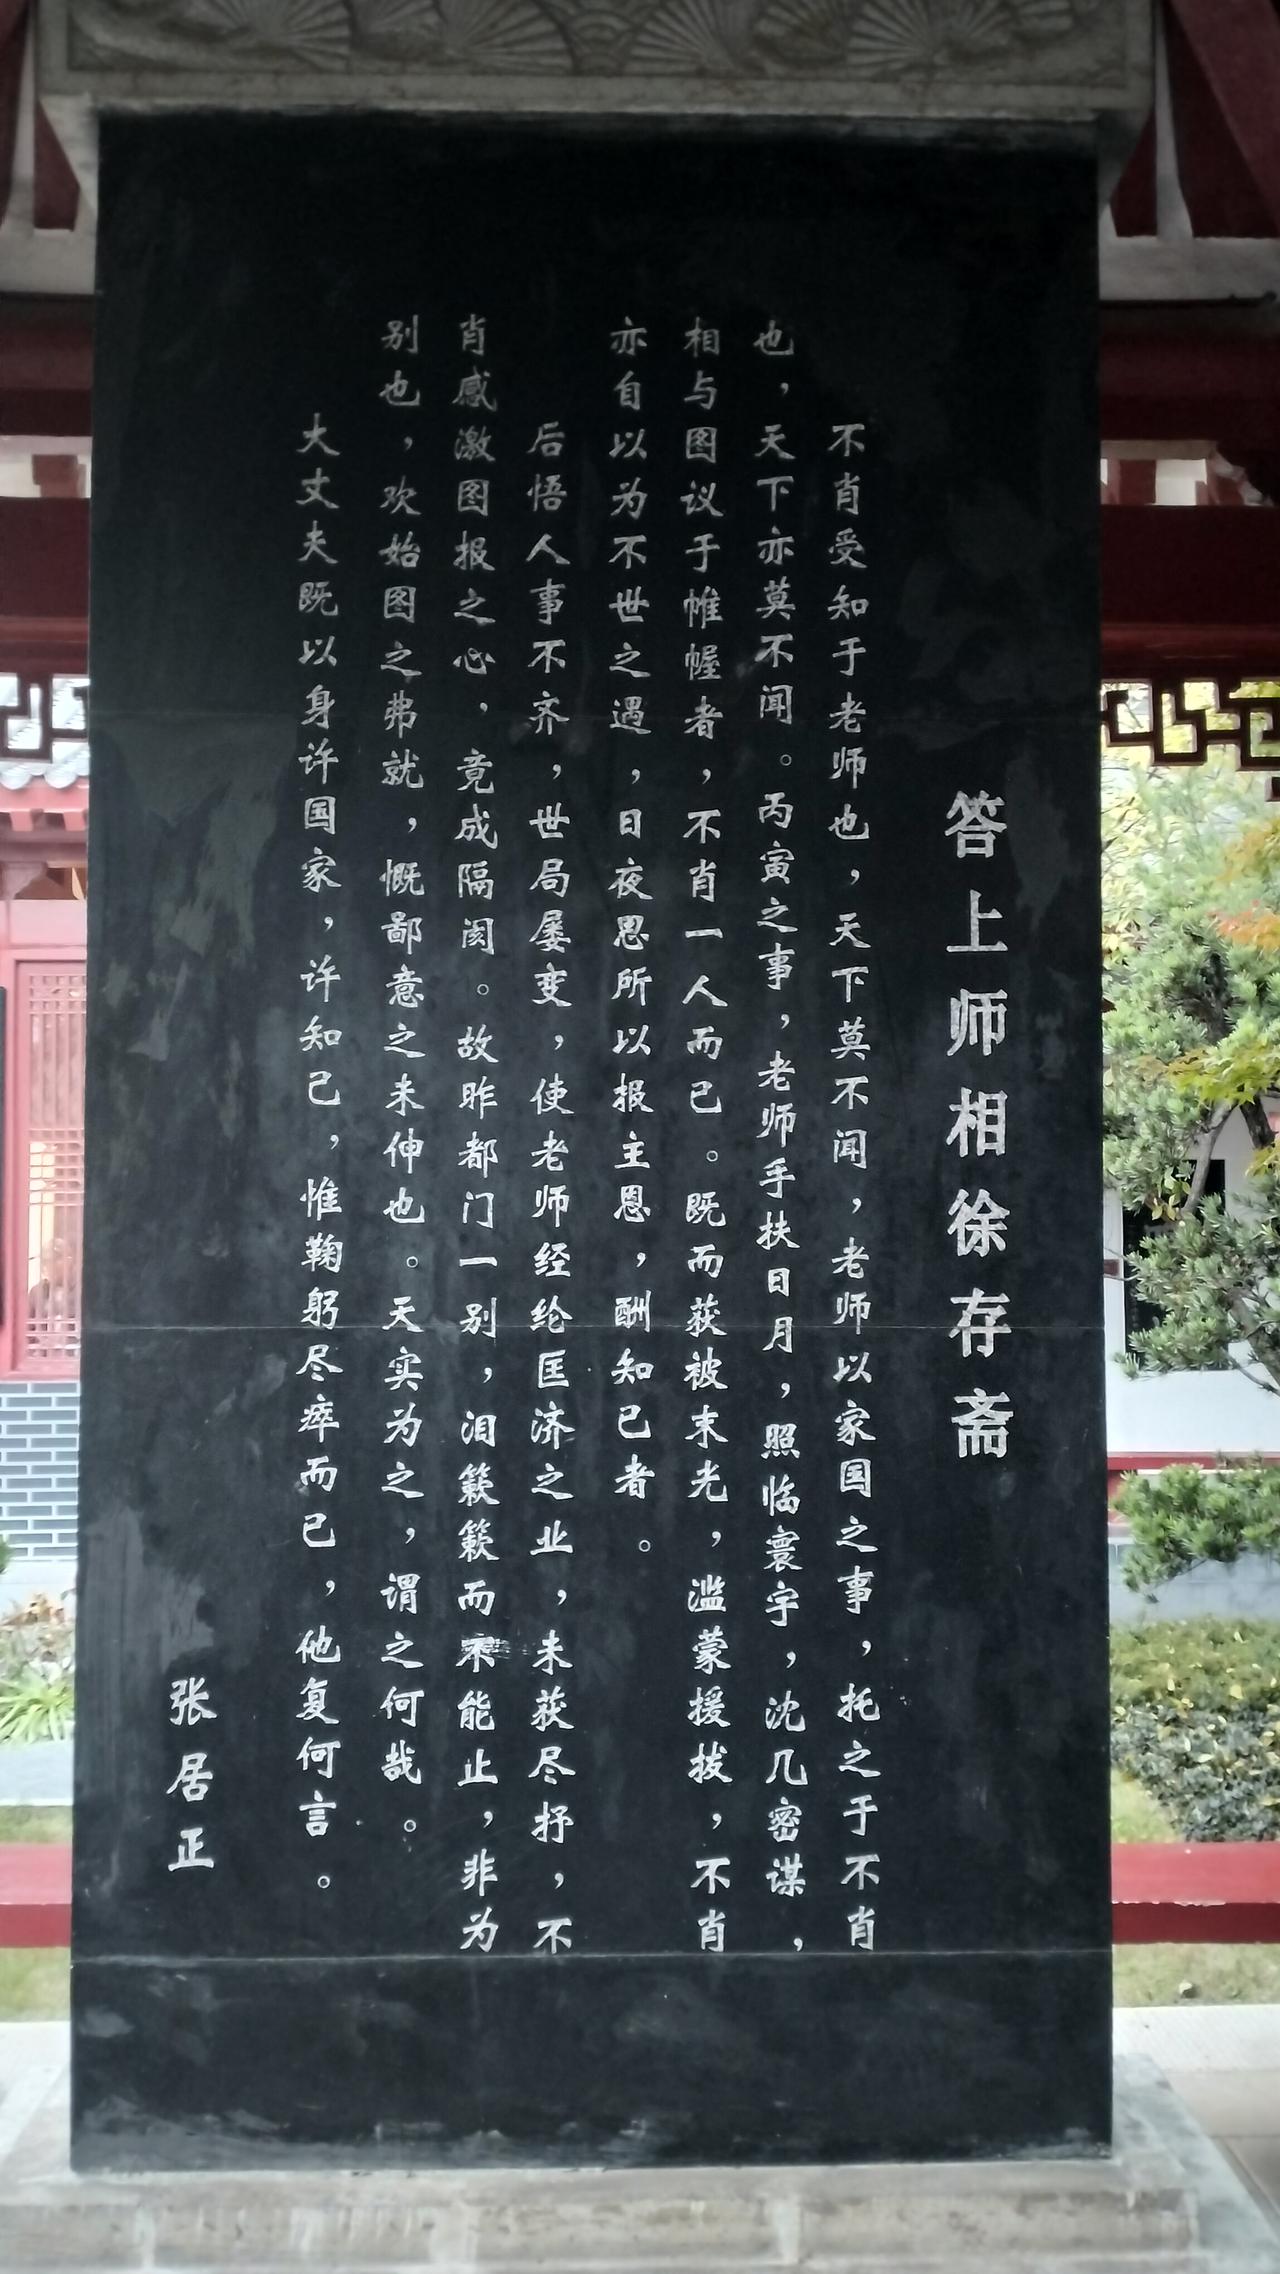 答上师相徐存斋
不肖受知于老师也，天下莫不闻，老师以家国之事，托之于不肖
也，天下亦莫不闻。丙寅之事，老师手扶日月，照临寰宇，沈几密谋，
相与图议于帷幄者，不肖一人而已。既而获被末光，滥蒙援拔，不肖
亦自以为不世之遇，日夜思所以报主恩，酬知己者。
后悟人事不齐，世局屡变，使老师经纶匡济之业，未获尽抒，不
肖感激图报之心，竟成隔阂。故昨都门一别，泪簌簌而不能止，非为
别也，叹始图之弗就，慨鄙意之未伸也。天实为之，谓之何哉。
大丈夫既以身许国家，许知己，惟鞠躬尽瘁而已，他复何言。
张居正